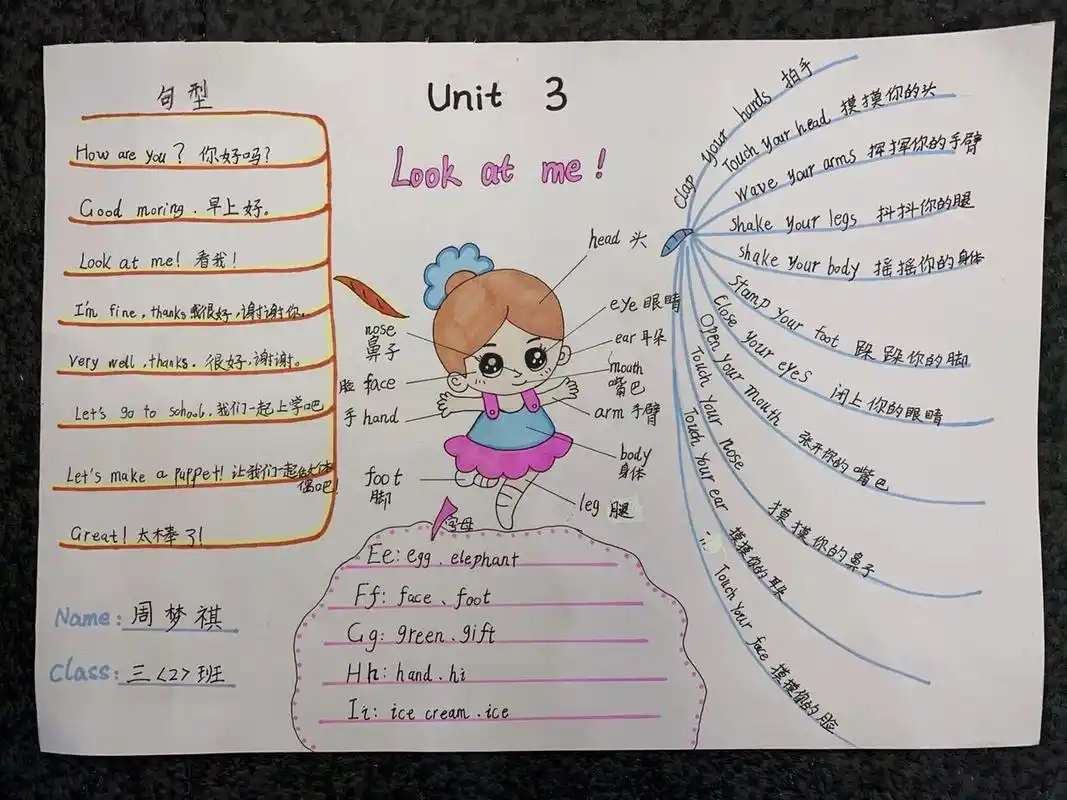 Unit 3
Look at me!
句型
How are you? 你好吗?
Good moring. 早上好。
Look at me! 看我!
I'm fine, thanks 我很好,谢谢你。
Very well, thanks. 很好,谢谢。
Let's go to school. 我们一起上学吧
Let's make a puppet! 让我们一起做个木
偶吧
Great! 太棒了!
Name: 周梦祺
Class: 三<2>班
head 头
eye 眼睛
ear 耳朵
mouth
嘴巴
arm 手臂
body
身体
leg 腿
nose
鼻子
脸 face
手 hand
foot
脚
字母
Ee: egg、elephant
Ff: face、foot
Gg: green、gift
Hh: hand、hi
Ii: ice cream、ice
Clap your hands 拍手
Touch your head 摸摸你的头
Wave your arms 挥挥你的手臂
Shake your legs 抖抖你的腿
Shake your body 摇摇你的身体
Stamp your foot 跺跺你的脚
Close your eyes 闭上你的眼睛
Open your mouth 张开你的嘴巴
Touch your nose 摸摸你的鼻子
Touch your ear 摸摸你的耳朵
Touch your face 摸摸你的脸